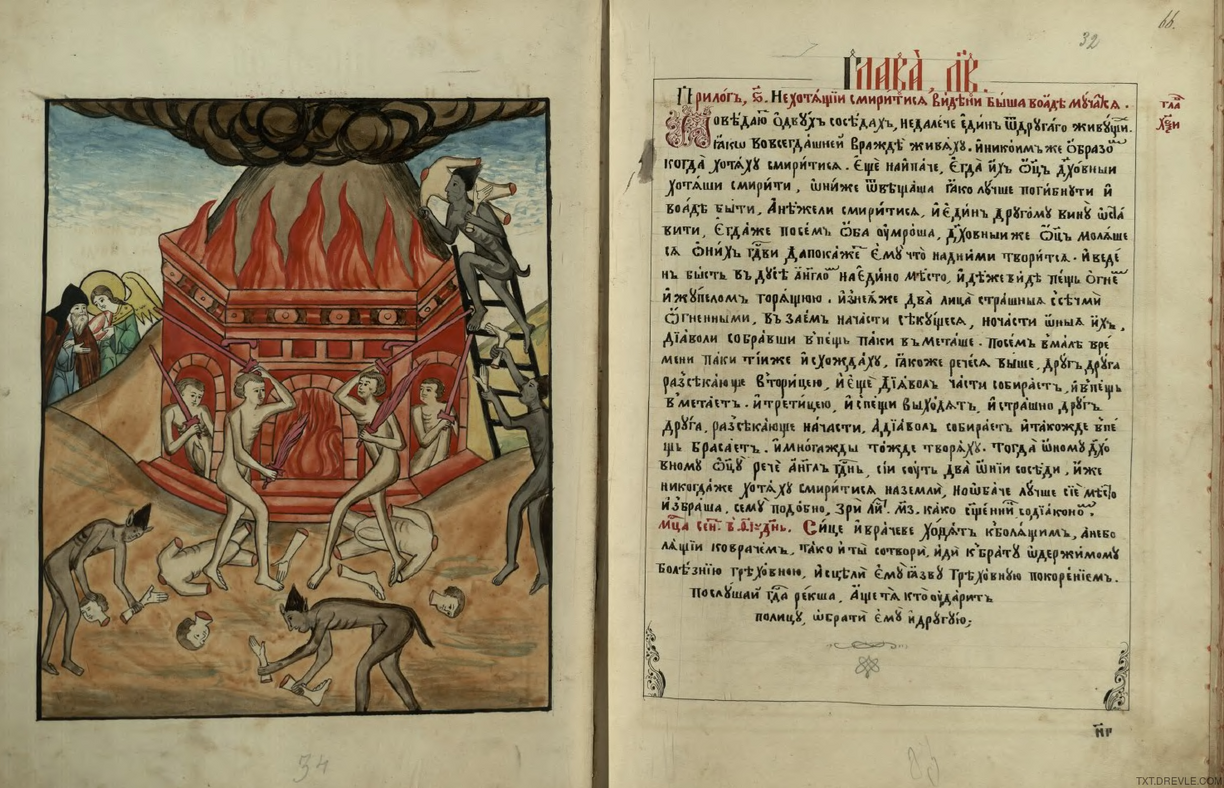 66.
32
ГЛАВА, Л҃В.
Прилогъ, ѕ҃. Нехотѧщїи смиритисѧ видѣни быша воадѣ мучаксѧ.
гла҃
Повѣдаю ѻдвухъ сосѣдахъ, недалече единъ ѿдругаго живущи.
ꙗкѡ вовсегдашней враждѣ живѧху. иникоимъже ѻбразо
когда хотѧху смиритисѧ. Еще наипаче, Егда ихъ ѻц҃ъ дх҃овныи
хотѧши смирити, ѡниже ѿвѣщаша ꙗко лучше погибнути и
воадѣ быти, Анѣжели смиритисѧ, и единъ другому вину ѡста
вити, Егдаже посемъ ѻба оумроша, дх҃овныиже ѻц҃ъ молѧше
сѧ ѻнихъ гдⷭ҇ви дапокажеⷮ ему что надними творитсѧ. иведе
нъ бысть въдусѣ англоⷨ наедино мѣсто, идѣже видѣ пещь ѻгнеⷨ
ижупеломъ горѧщюю. изнеѧже два лица страшныѧ ссѣчми
ѻгненными, въ заемъ начасти сѣкущесѧ, ночасти ѡныѧ ихъ,
дїаволи собравши впещь паки въметаше. посемъ вмалѣ вре
мени паки тїиже исхождаху, ꙗкоже речесѧ выше, другъ друга
разсѣкающе вторицею, иеще дїаволъ части собираетъ, ивпещь
вметаетъ. итретицею, испещи выходѧтъ, истрашно другъ
друга, разсѣкающе начасти, адїаволъ собираетъ итакожде впе
щь брасаетъ. имногажды тожде творѧху. тогда ѡному дх҃о
вному ѻц҃у рече англъ гдⷭ҇нь, сїи суть два ѡнїи сосѣди, иже
никогдаже хотѧху смиритисѧ наземли, ноѡбаче лучше сїе мѣсто
избраша, сему подобно, зри лиⷭ҇. м҃з. како сщенниⷦ содїаконоⷨ.
мц҃а сеⷩ҇. Сице иврачеве ходѧтъ кболѧщимъ, анебо
лѧщїи коврачемъ, тако иты сотвори, иди кбрату ѡдержимому
болѣзнїю грѣховною, исцѣли ему ꙗзву грѣховную покоренїемъ.
послушаи гдⷭ҇а рекша, аще тѧ кто оударитъ
полицу, ѡбрати ему идругую;
34
TXT.DREVLE.COM